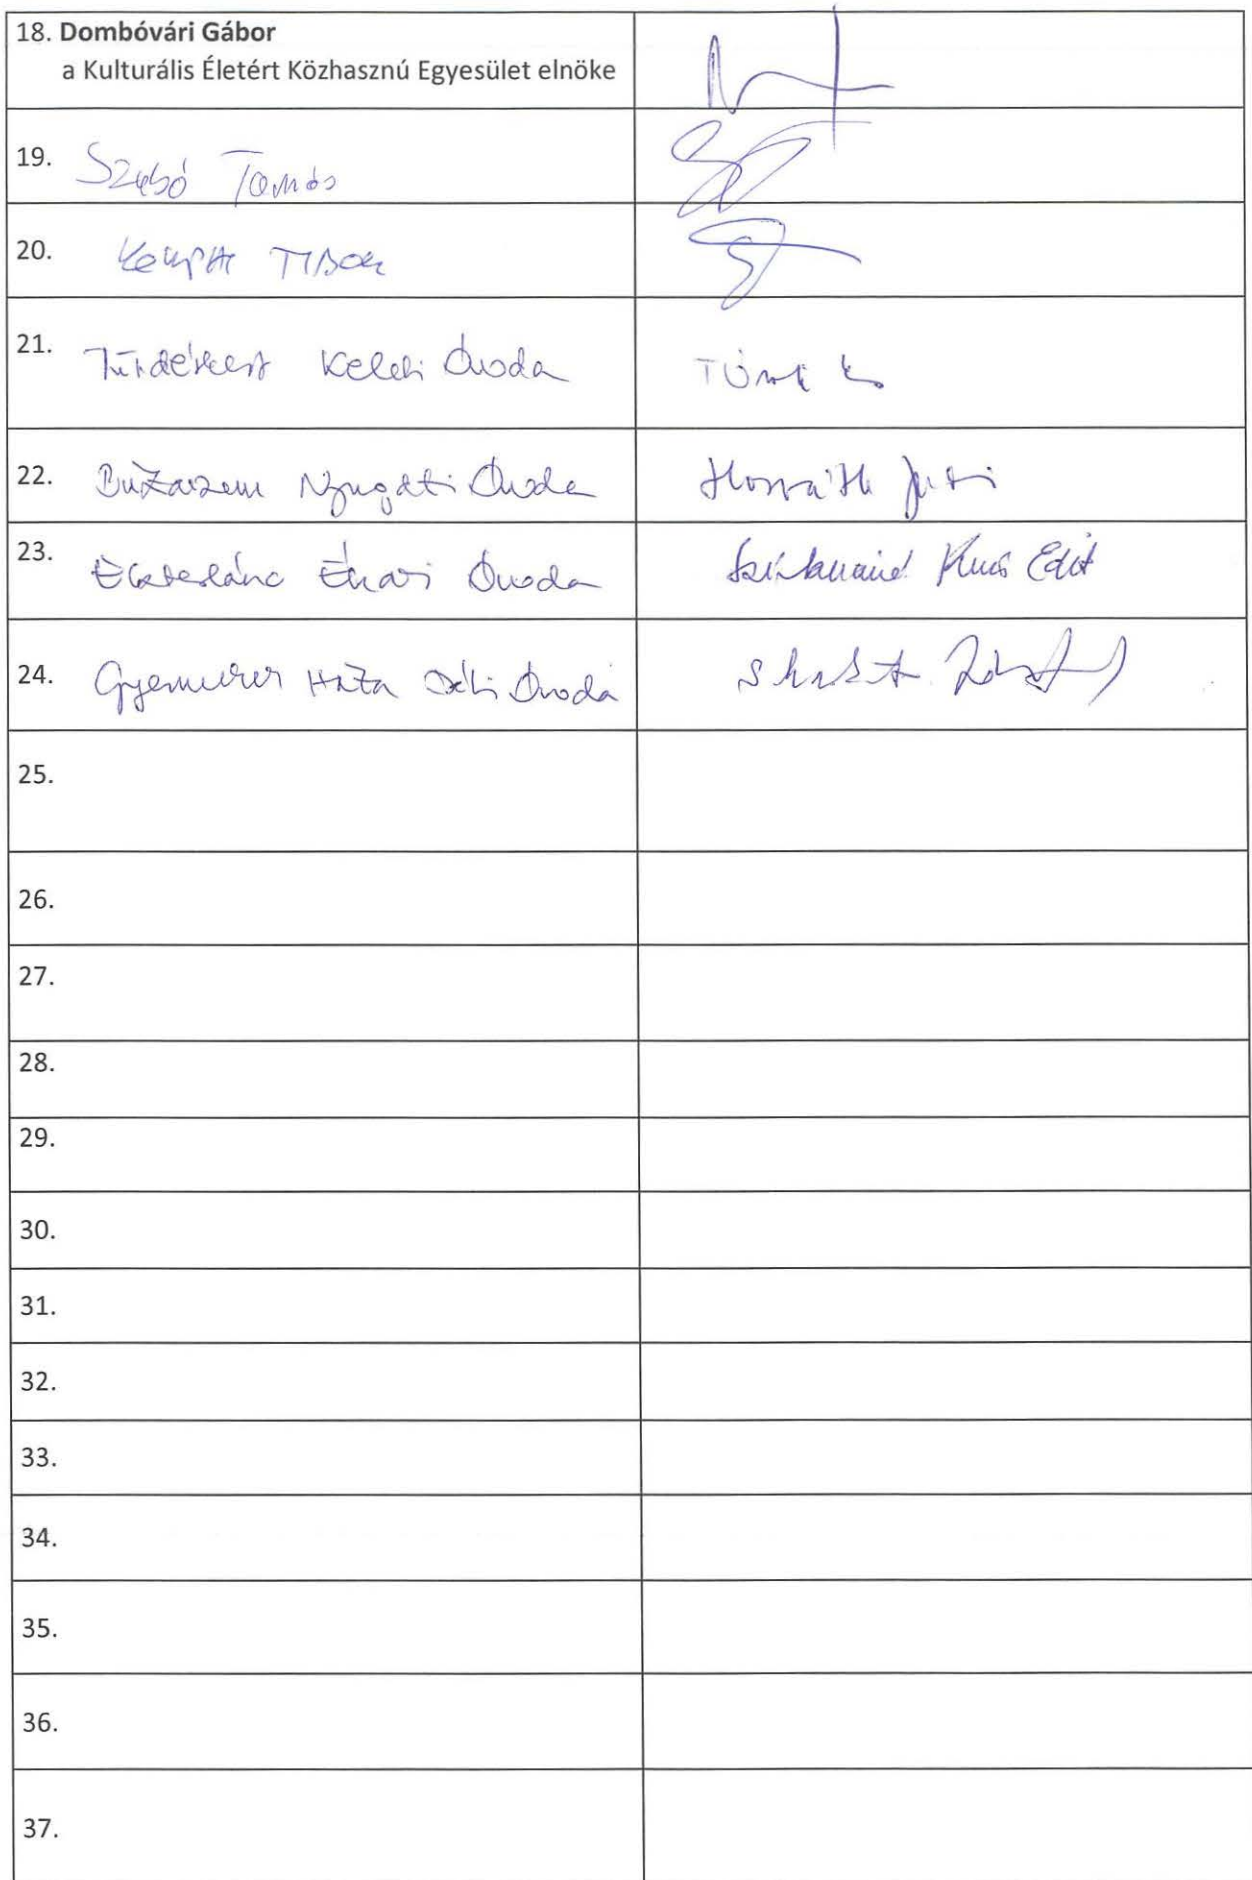 18. Dombóvári Gábor
a Kulturális Életért Közhasznú Egyesület elnöke
19. Szabó Tamás
20. Tibor
21. Tündérkert Keleti Óvoda
22. Búzaszem Nyugati Óvoda Horváth Juti
23. Eszterlánc Északi Óvoda Edit
24. Gyermekek Háza Déli Óvoda
25.
26.
27.
28.
29.
30.
31.
32.
33.
34.
35.
36.
37.